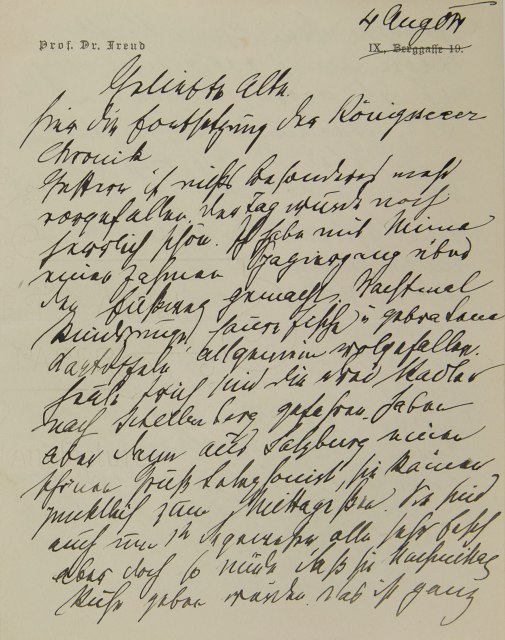 4 Aug 04
Prof. Dr. Freud
IX., Berggasse 19.
Geliebte Alte
hier die Fortsetzung der Königsseeer
Chronik
Gestern ist nichts besonderes mehr
vorgefallen. Der Tag wurde noch
herrlich schön. Ich habe mit Minna
einen zahmen Spaziergang über
den gemacht, Nachtmal
Rindszunge u gebratene
Kartoffeln allgemein wolgefallen.
Heute früh sind die drei Radler
nach Schellenberg gefahren, haben
aber dann aus Salzburg einen
schönen Gruß telephonirt, sie kamen
pünktlich zum Mittagessen. Sie sind
auch um alle sehr frisch
aber doch so müde daß sie Nachmittag
Ruhe geben werden. Das ist ganz